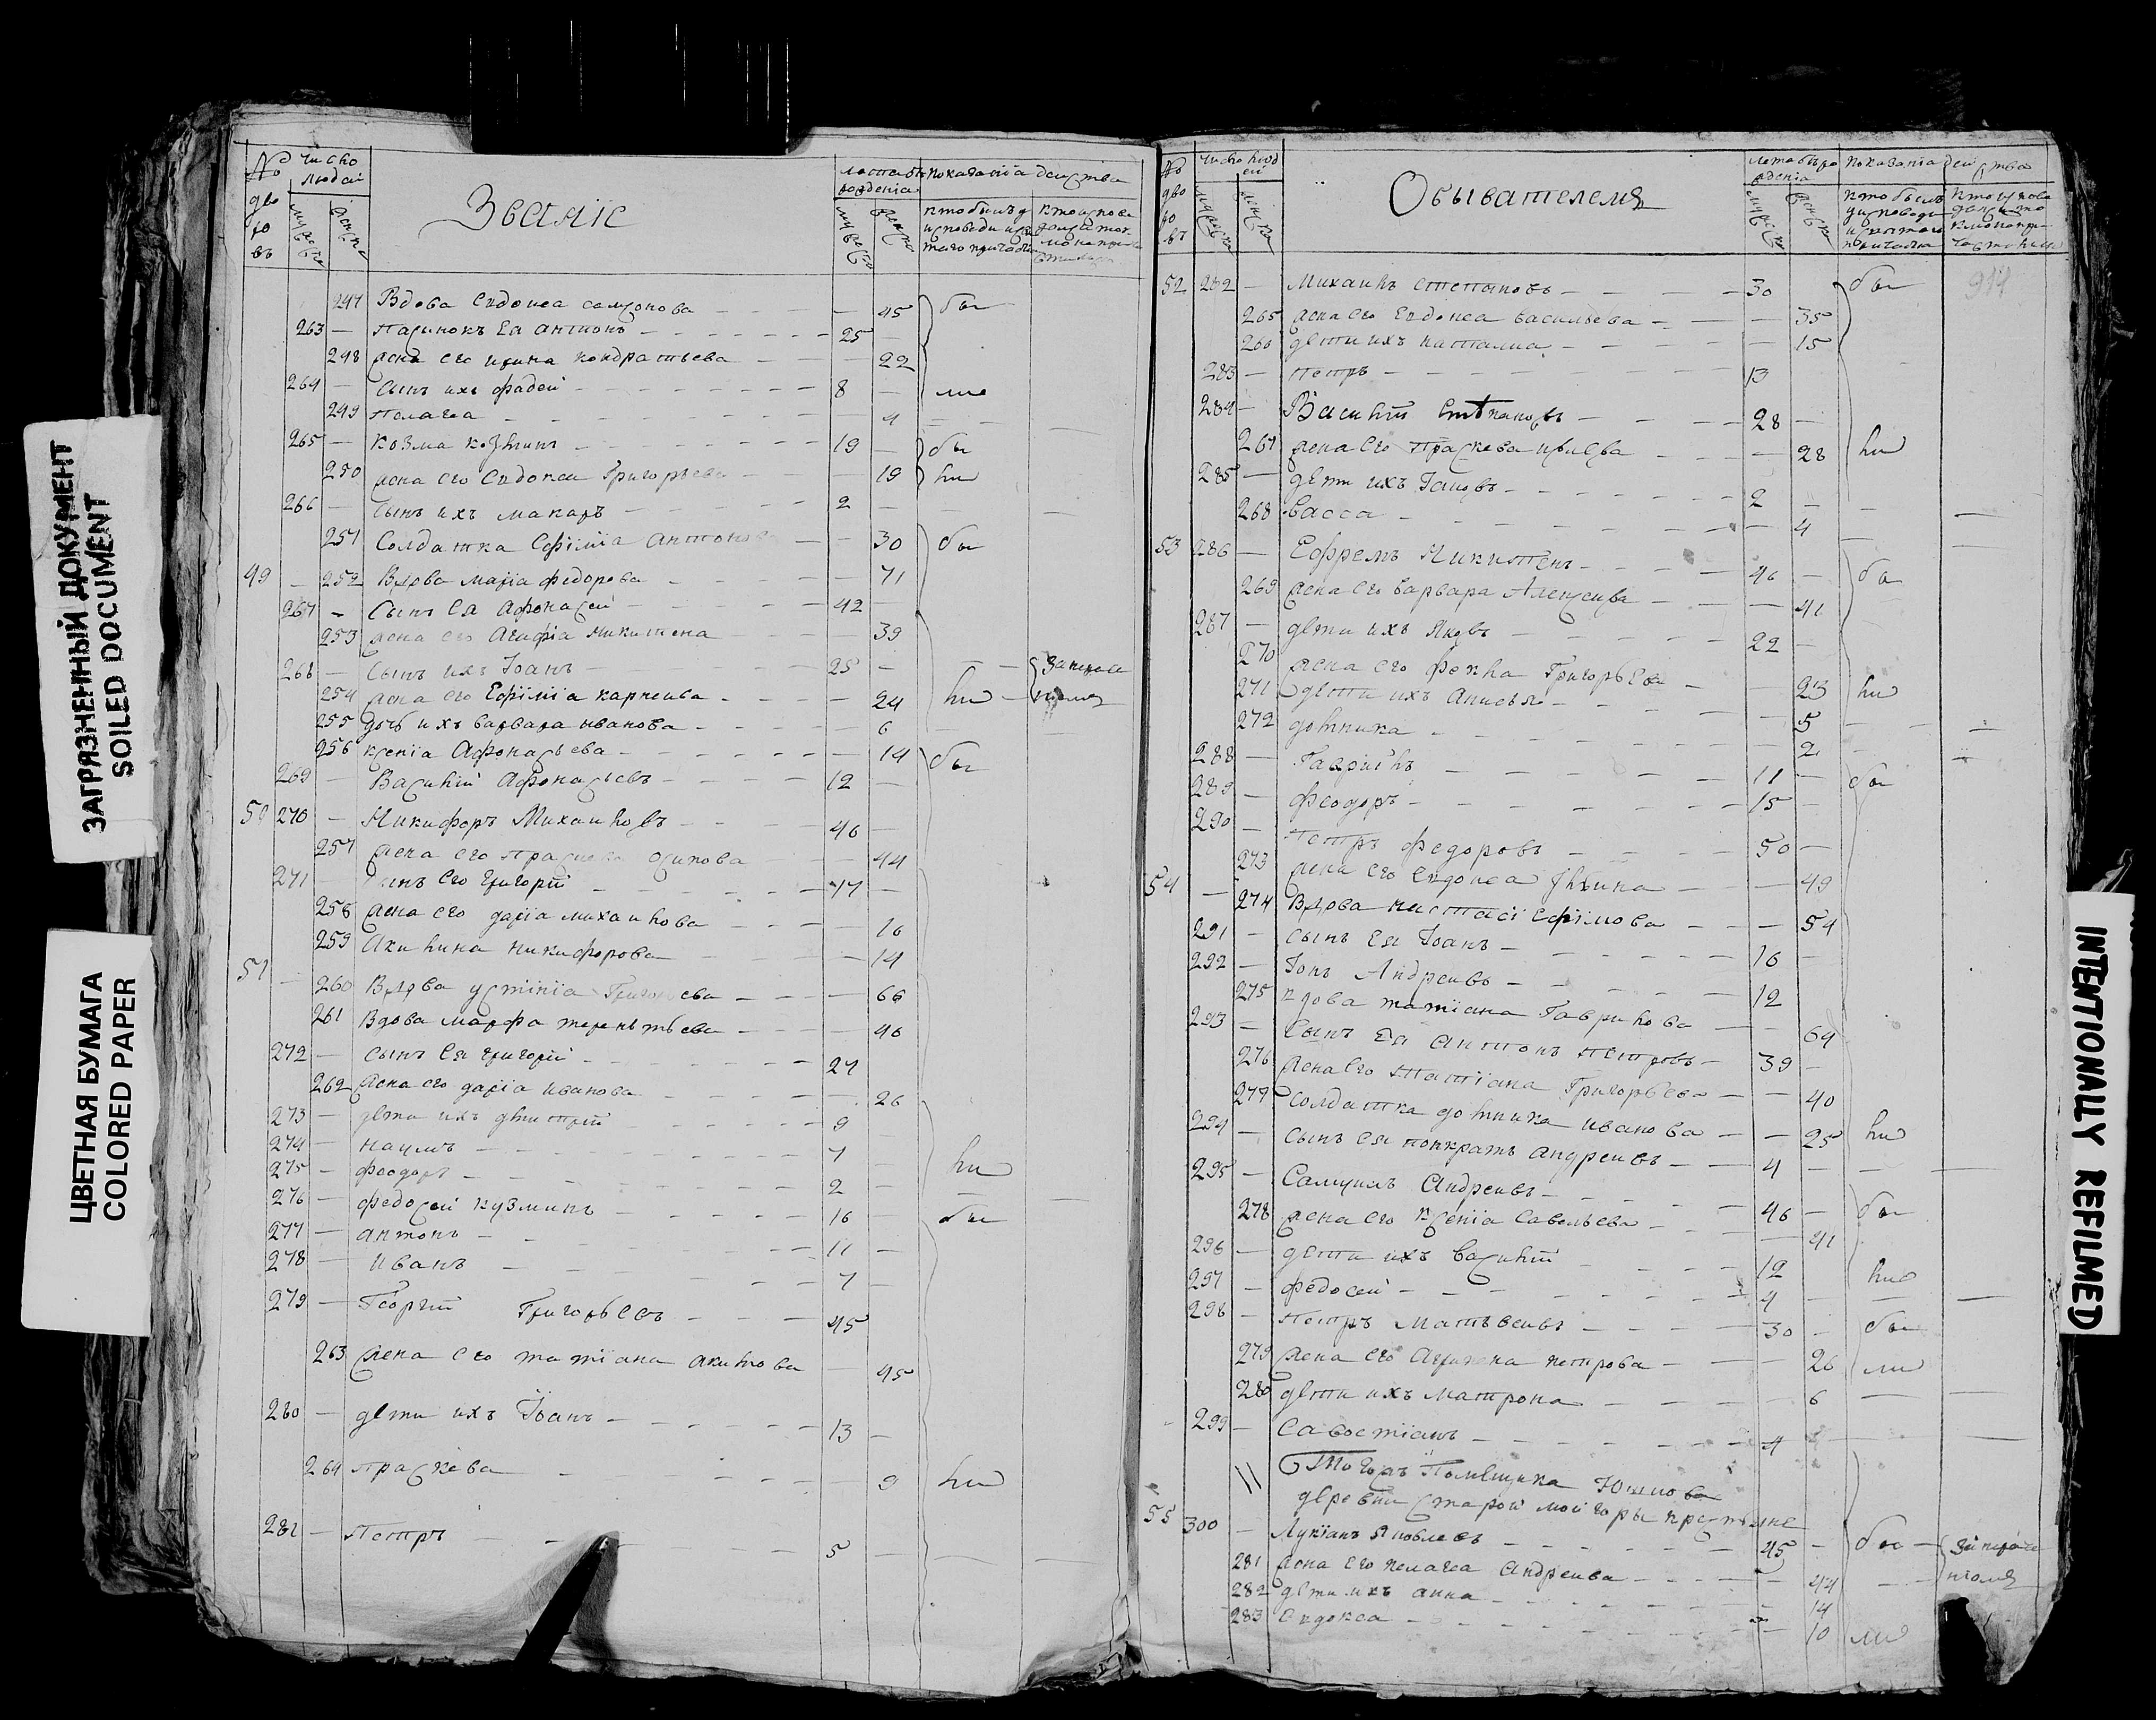 ЗАГРЯЗНЕННЫЙ ДОКУМЕНТ
SOILED DOCUMENT
ЦВЕТНАЯ БУМАГА
COLORED PAPER
№ дворовъ число людей Званiе лета отъ рожденiя показанiя действа
247 Вдова Евдокеа самсонова 45 бы
263 пасинокъ Ея антонъ 25
248 жена его ирина кондратьева 22
264 сынъ ихъ фадей 8 ма
249 пелагеа 4
265 козма козминъ 19 бы
250 жена его Евдокеа Григорьева 19 ни
266 сынъ ихъ макаръ 2
251 Солдатка Ефимiа Антонова 30 бы
49 252 Вдова марiа федорова 71
267 Сынъ Ея Афонасей 42
253 жена его Агафiа микитена 39
268 Сынъ ихъ Iоанъ 25
254 жена его Ефимiа карпеива 24 ни
255 дочь ихъ варвара иванова 6
256 ксенiа Афонасьева 14 бы
269 Василiй Афонасьевъ 12
50 270 Никифоръ Михаиловъ 46
257 жена его праскева осипова 44
271 сынъ Его григорiй 17
258 жена его дарiа михаилова 16
259 Акилина никифорова 14
51 260 Вдова устинiа Григорьева 66
261 Вдова марфа терентьева 46
272 сынъ Ея григорiй 27
262 жена его дарiа иванова 26
273 дети ихъ дмитрiй 9
274 наумъ 7 ни
275 феодоръ 2
276 федосей кузминъ 16 бы
277 антонъ 11
278 Иванъ 7
279 Георгiй Григорьевъ 45
263 жена Его татiана акимова 45
280 дети ихъ Iоанъ 13
264 праскева 9 ни
281 Петръ 5
№ дворовъ число людей Обывателемъ лета отъ рожденiя показанiя действа
52 282 Михаилъ степановъ 30 бы
265 жена его Евдокеа васильева 35
266 дети ихъ наталиа 15
283 петръ 13
284 Василiй Степановъ 28
267 жена Его праскева 28 ни
285 дети ихъ Iаковъ 2
268 васса 4
53 286 Ефремъ Никитенъ 46 бы
269 жена Его варвара Алексеива 41
287 дети ихъ Яковъ 22
270 жена его фекла Григорьева 23 ни
271 дети ихъ Анисья 5
272 домника 2
288 Гаврiилъ 11 бы
289 феодоръ 15
290 Петръ федоровъ 50
273 жена Его Евдокеа 49
54 274 Вдова настасi Ефiмова 54
291 сынъ Ея Iоанъ 16
292 Iонъ Андреивъ 12
275 вдова татiана Гаврилова 64
293 Сынъ Ея Антонъ петровъ 39
276 жена Его татiана Григорьева 40
277 солдатка домника иванова 25 ни
294 сынъ Ея понкратъ андреивъ 4
295 Самуилъ Андреивъ 46 бы
278 жена Его ксенiа савельева 41
296 дети ихъ василiй 12 ни
297 федосей 4
298 петръ Матвеивъ 30 бы
279 жена Его Агрипена петрова 26 ни
280 дети ихъ матрона 6
299 Савостiанъ 4
55 300 Лукiанъ Яковлевъ 45 бы
281 жена Его пелагеа Андреива 44
282 дети ихъ анна 14
283 Евдокеа 10 ни
INTENTIONALLY REFILMED